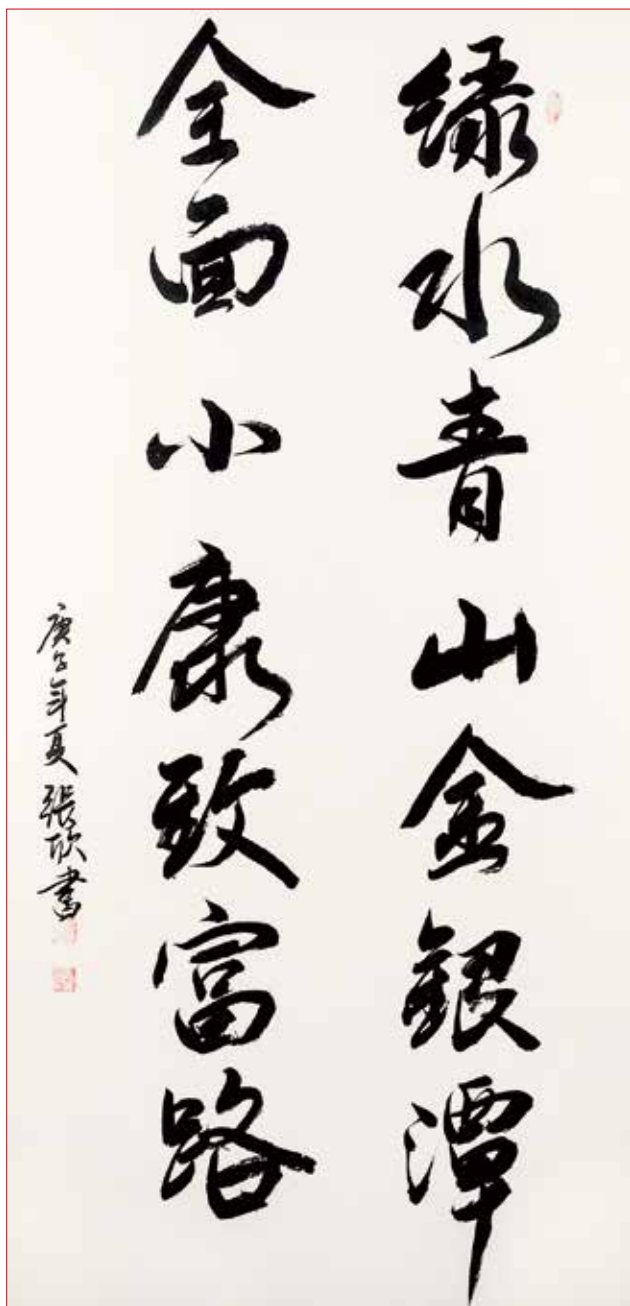 绿水青山金銀潭
全面小康致富路
庚子年夏 張欣書